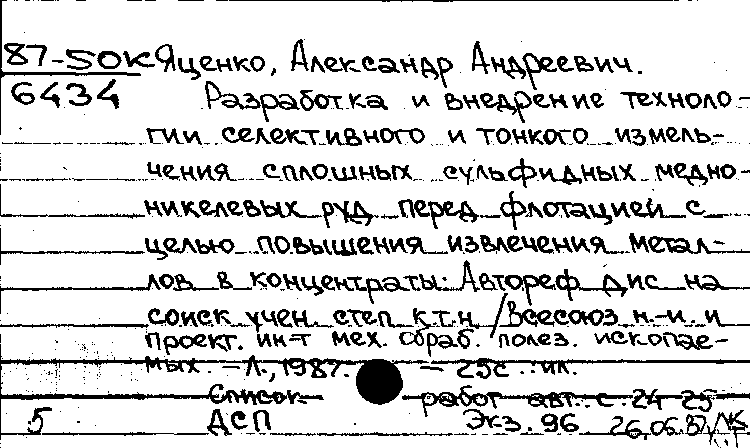 87-5ОК Яценко, Александр Андреевич.
6434 Разработка и внедрение техноло-
гии селективного и тонкого измель-
чения сплошных сульфидных медно-
никелевых руд перед флотацией с
целью повышения извлечения метал-
лов в концентраты: Автореф дис на
соиск учен. степ к.т.н. /Всесоюз н.-и. и
проект. ин-т мех. обраб. полез. ископае-
мых. – Л., 1987. – 25с. : ил.
Список работ авт. с. 24-25
5 ДСП Экз. 96 26.06.87